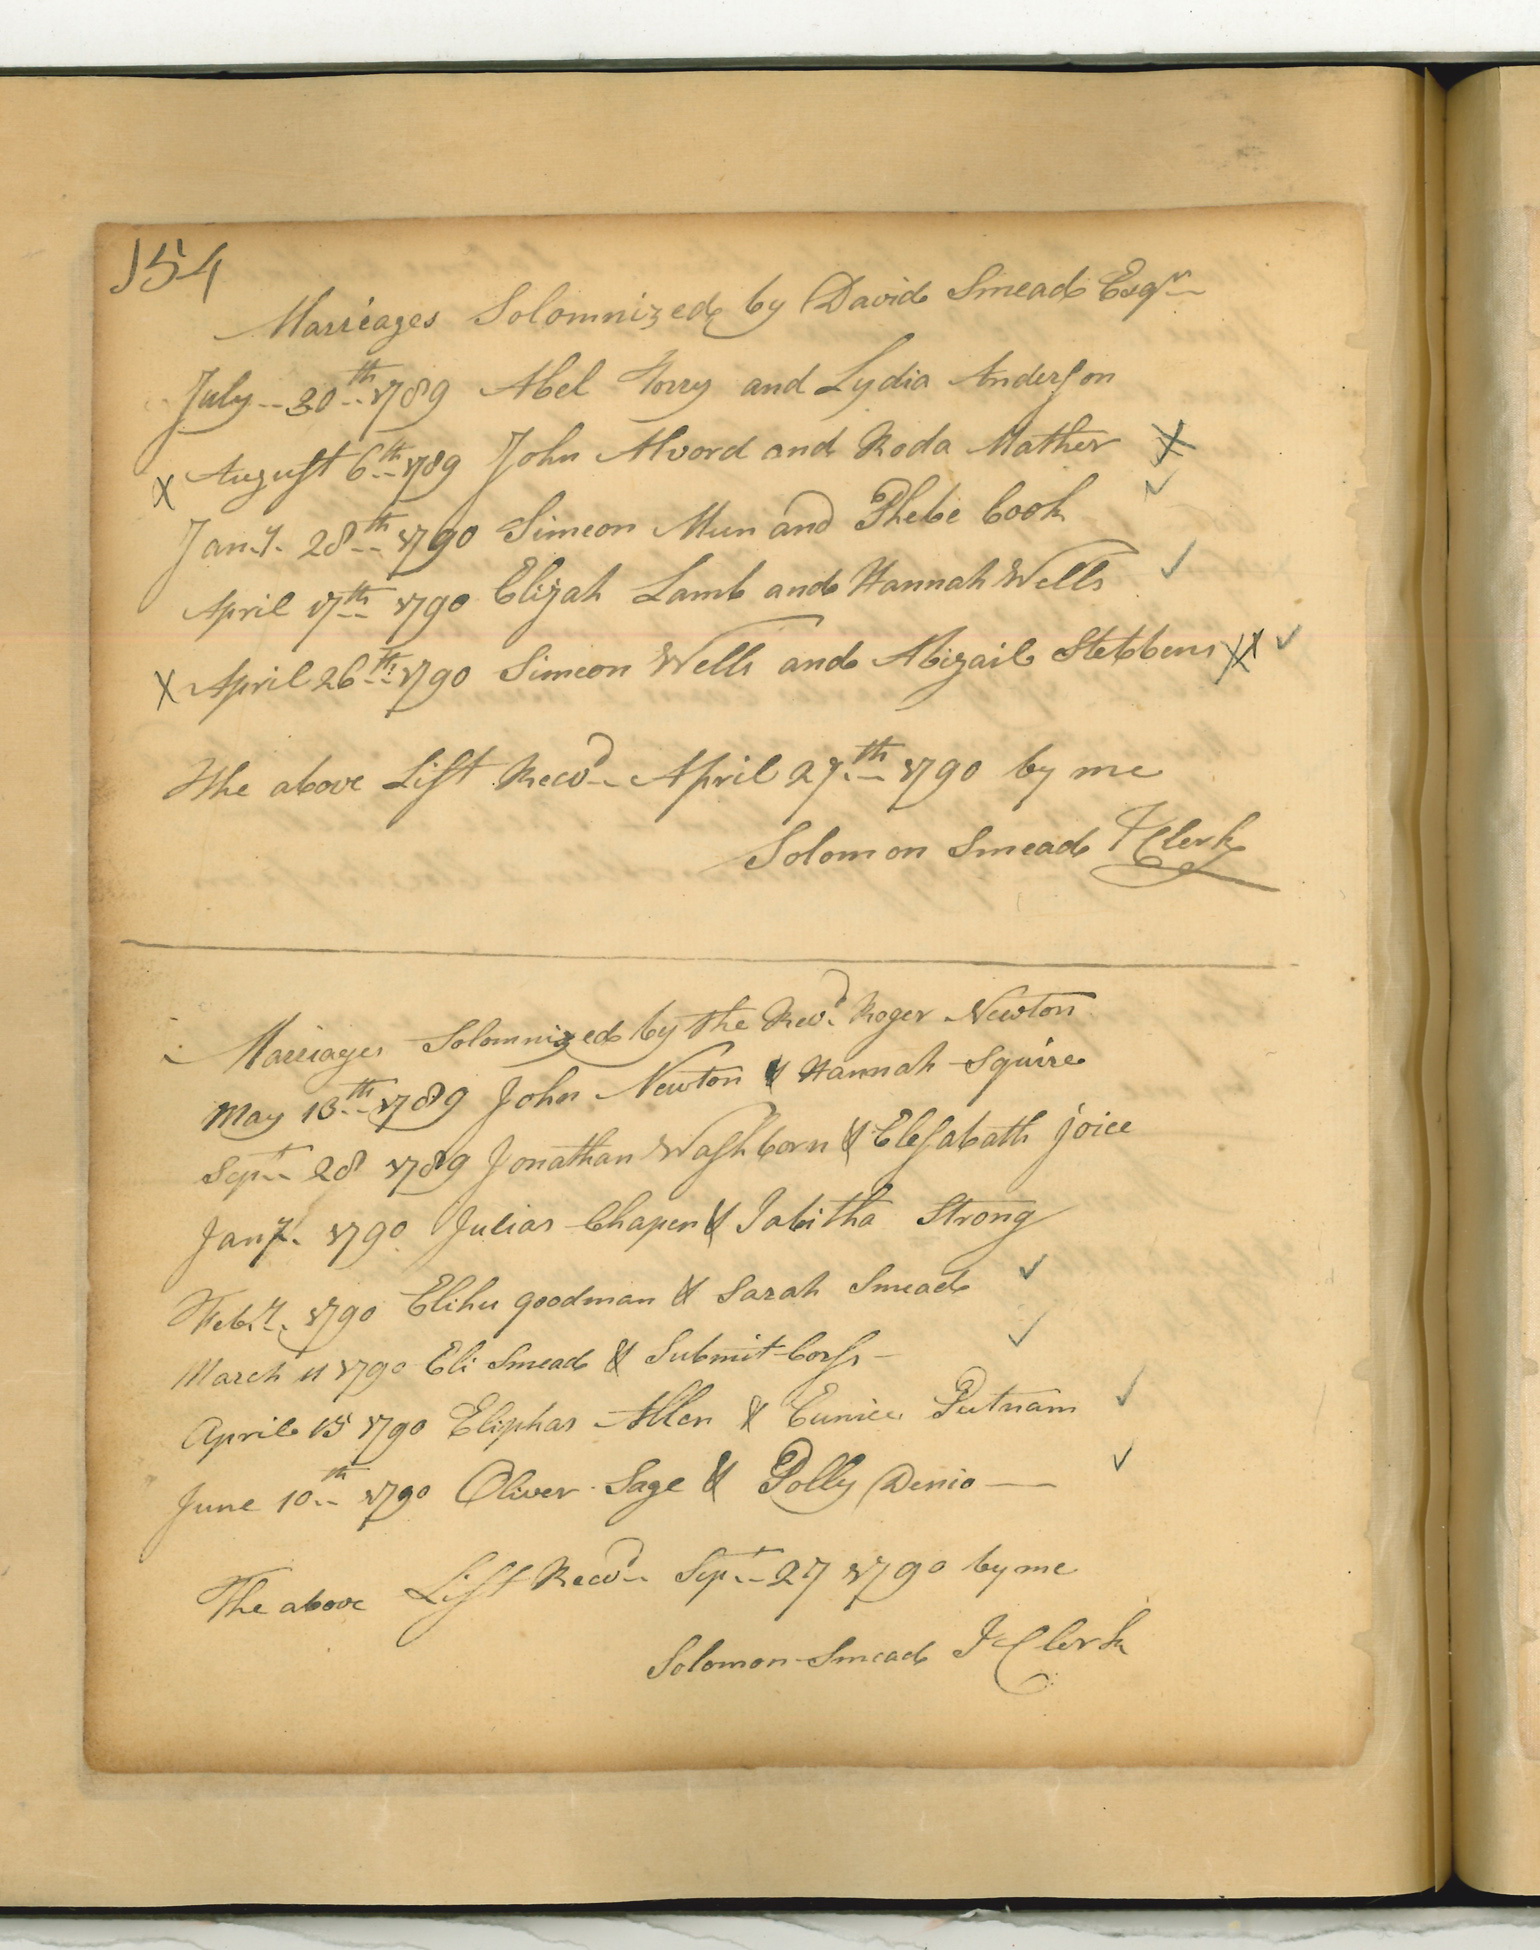 154
Marriages Solomnized by David Smead Esqr
July 30th 1789 Abel Torry and Lydia Anderson
X August 6th 1789 John Alvord and Roda Mather X
Jany. 28th 1790 Simeon Mun and Phebe Cook ✓
April 17th 1790 Elijah Lamb and Hannah Wells ✓
X April 26th 1790 Simeon Wells and Abigail Stebbens XX ✓
The above List Recvd April 27th 1790 by me
Solomon Smead T Clerk
Marriages Solomnized by the Revd. Roger Newton
May 13th 1789 John Newton & Hannah Squire
Sept 28 1789 Jonathan Washborn & Elesabath Joice
Jany. 1790 Julias Chapen & Tabitha Strong
Feby. 1790 Elihu goodman & Sarah Smead ✓
March 11 1790 Eli Smead & Submit Corss ✓
April 15 1790 Eliphas Allen & Eunice Putnam ✓
June 10th 1790 Oliver Sage & Polly Denio ✓
The above List Recvd Sept 27 1790 by me
Solomon Smead T Clerk